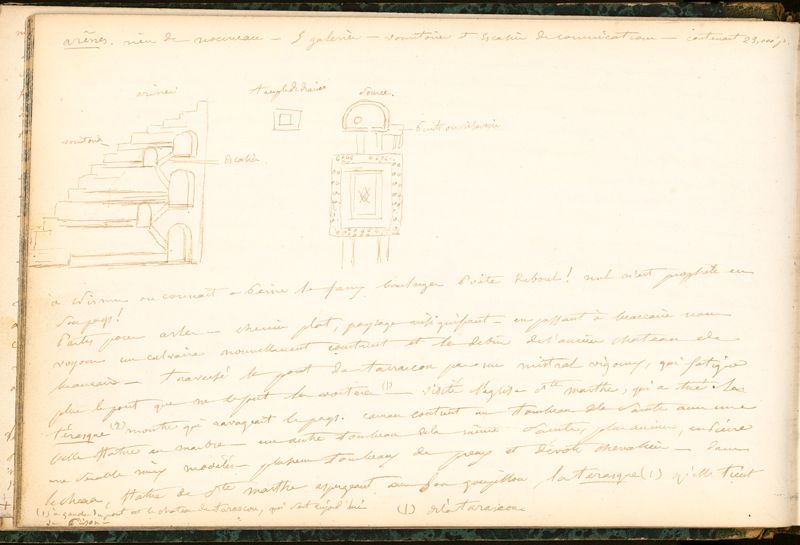 arênes. rien de nouveau — 5 galeries — vomitoire et escalier de communication — contenait 23,000 p.
arènes
Temple de Diane
Source.
vomitoire
escalier.
à Nismes on connait à peine le fameux boulanger Poëte Reboul! nul n'est prophète en
son pays!
Partis pour Arles — chemin plat, paysage insignifiant — en passant à Beaucaire nous
voyons un calvaire nouvellement construit et les débris de l'ancien chateau de
Beaucaire — traversé le pont de Tarascon par un mistral vigoureux, qui fatigue
plus le pont que ne le fait la voiture (1) — visité l'église Ste Marthe, qui a tué la
térasque (2) monstre qui ravageait le pays. caveau contient un tombeau de la Sainte avec une
belle statue en marbre — un autre tombeau de la même Sainte, plus ancien, en pierre
me semble mieux modelé — plusieurs tombeaux de preux et dévots chevaliers — dans
le choeur, statue de Ste Marthe aspergeant avec son goupillon la térasque (1) qu'elle tient
(1) à gauche du pont est le chateau de Tarascon, qui sert aujourd'hui
de Prison —
(1) de la tarascon